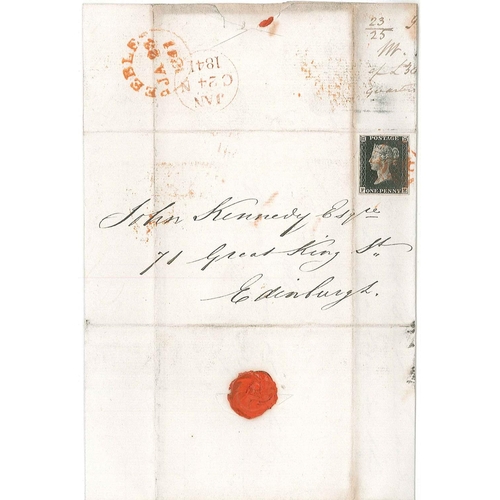 PEEBLES
JA 23
1841
JAN
C 24 N
1841
23
25
POSTAGE
ONE PENNY
John Kennedy Esqre
71 Great King St.
Edinburgh.